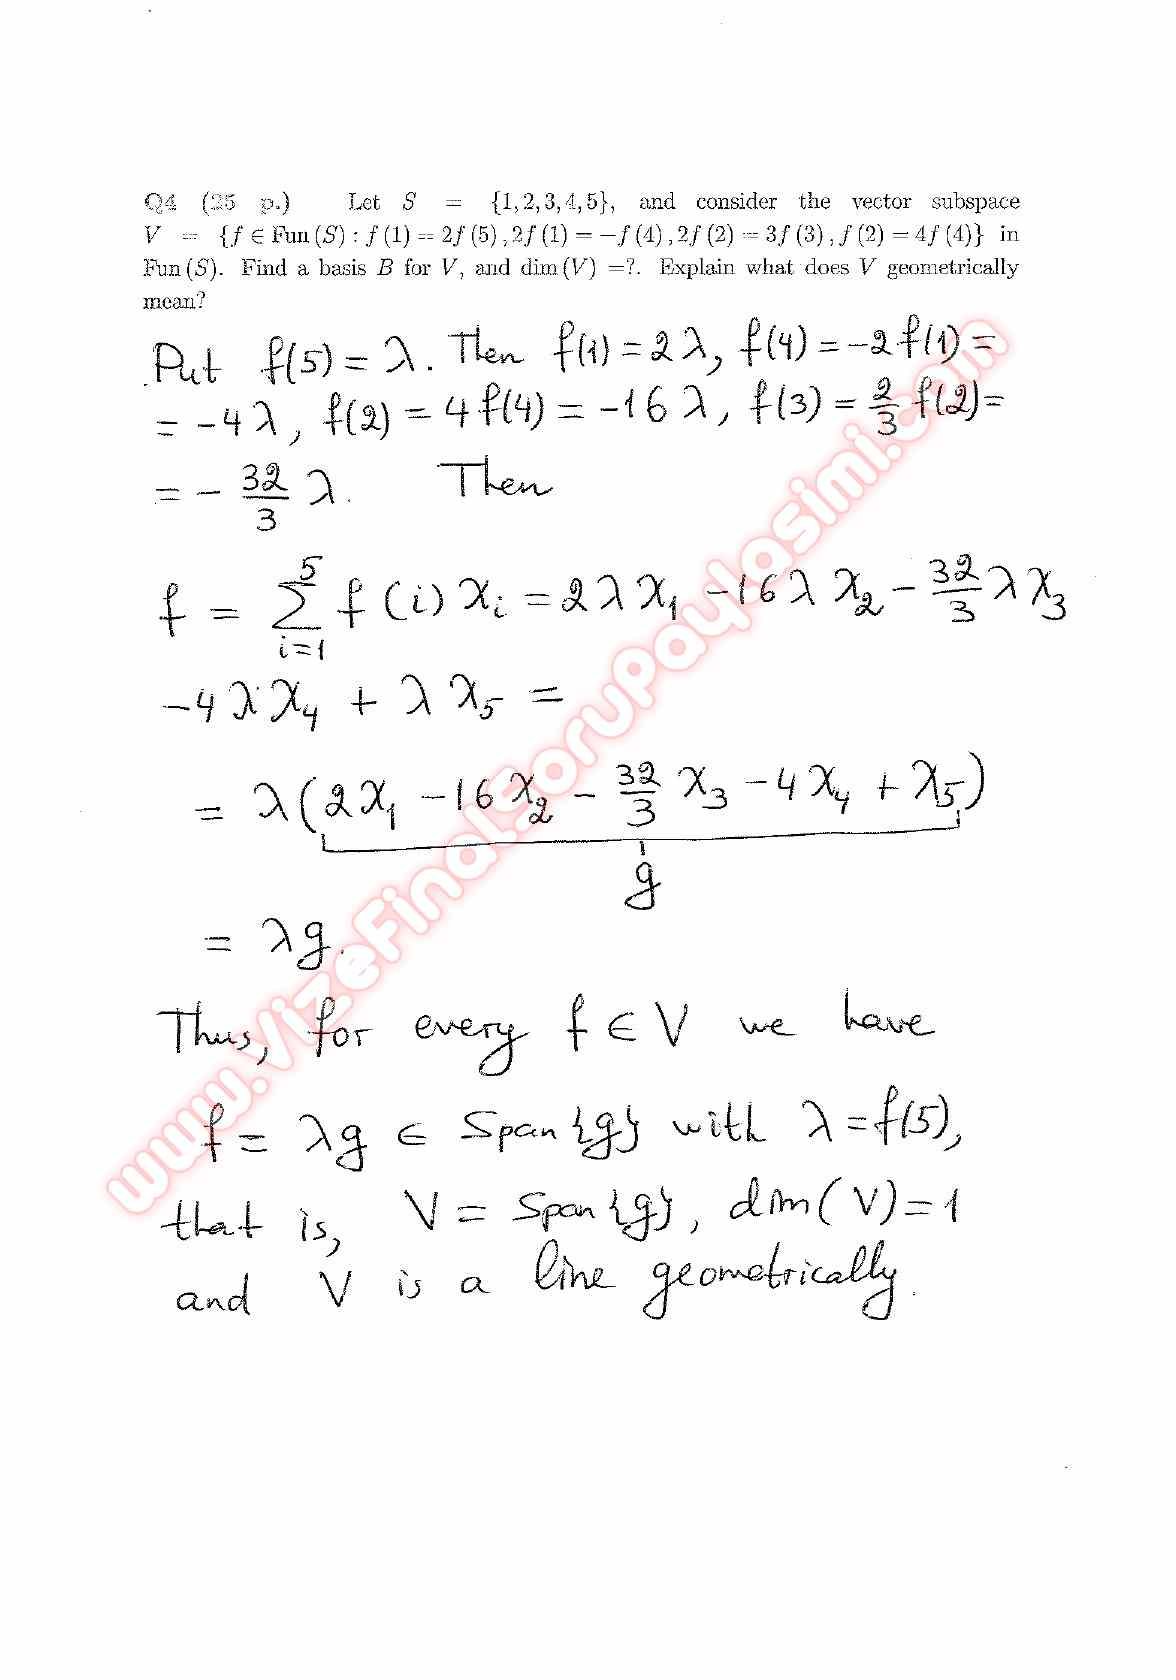 Q4 (25 p.) Let S = {1,2,3,4,5}, and consider the vector subspace
V = {f ∈ Fun (S) : f (1) = 2f (5) , 2f (1) = −f (4) , 2f (2) = 3f (3) , f (2) = 4f (4)} in
Fun (S). Find a basis B for V, and dim (V) =?. Explain what does V geometrically
mean?
Put f(5) = λ. Then f(1) = 2λ, f(4) = -2f(1) =
= -4λ, f(2) = 4f(4) = -16λ, f(3) = 2/3 f(2) =
= - 32/3 λ. Then
f = ∑_{i=1}^{5} f(i) χ_i = 2λχ_1 - 16λχ_2 - 32/3 λχ_3
-4λχ_4 + λχ_5 =
= λ(2χ_1 - 16χ_2 - 32/3 χ_3 - 4χ_4 + χ_5)
g
= λg.
Thus, for every f ∈ V we have
f = λg ∈ Span {g} with λ = f(5),
that is, V = Span {g}, dim(V) = 1
and V is a line geometrically.
www.VizeFinalSoruPaylasimi.com